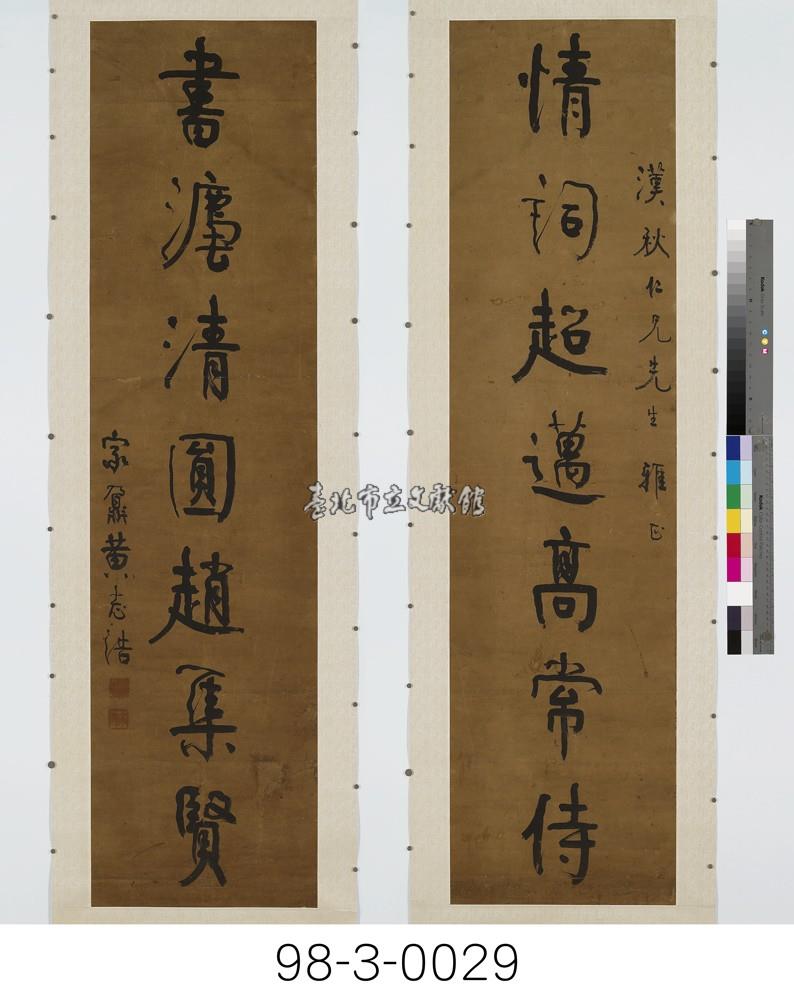 漢秋仁兄先生 雅正
情詞超邁高常侍
書灋清圓趙集賢
黃志浩
臺北市立文獻館
98-3-0029